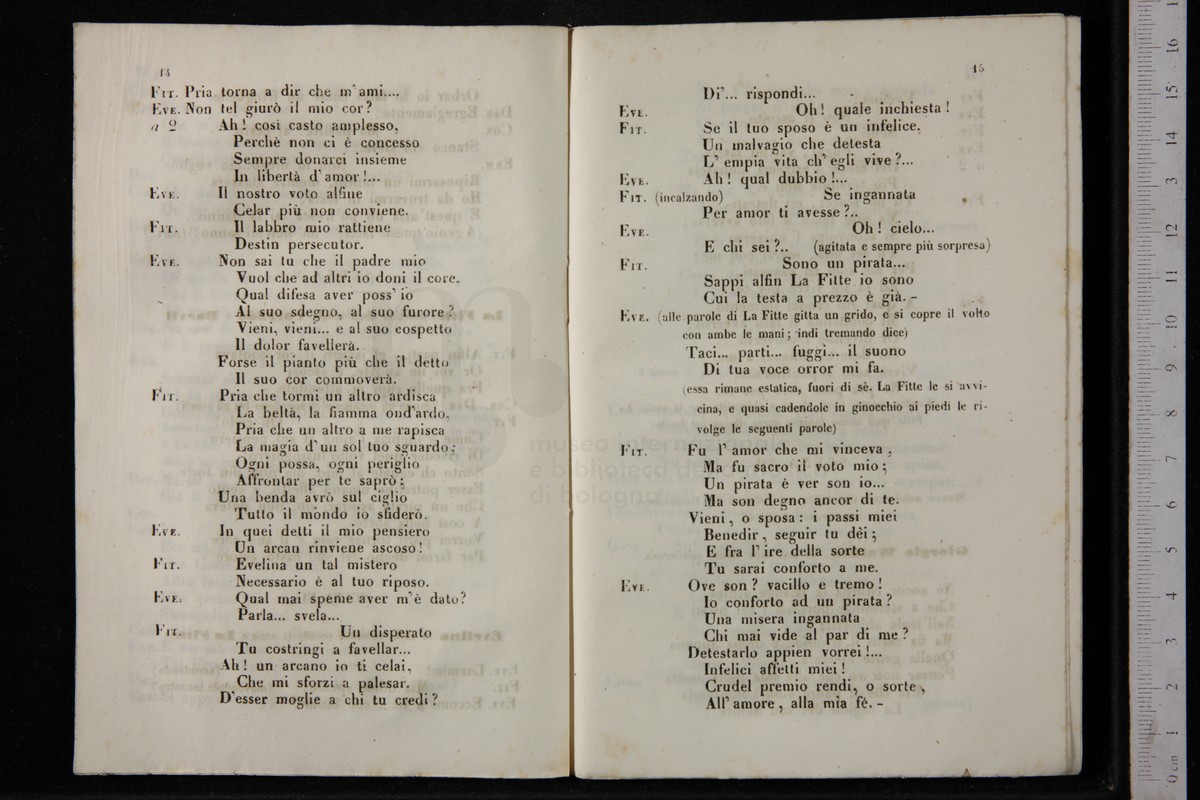 14
FIT. Pria torna a dir che m'ami....
EVE. Non tel giurò il mio cor?
a 2 Ah! così casto amplesso,
Perchè non ci è concesso
Sempre donarci insieme
In libertà d'amor!...
EVE. Il nostro voto alfine
Celar più non conviene.
FIT. Il labbro mio rattiene
Destin persecutor.
EVE. Non sai tu che il padre mio
Vuol che ad altri io doni il core.
Qual difesa aver poss'io
Al suo sdegno, al suo furore?
Vieni, vieni... e al suo cospetto
Il dolor favellerà.
Forse il pianto più che il detto
Il suo cor commoverà.
FIT. Pria che tormi un altro ardisca
La beltà, la fiamma ond'ardo,
Pria che un altro a me rapisca
La magia d'un sol tuo sguardo;
Ogni possa, ogni periglio
Affrontar per te saprò;
Una benda avrò sul ciglio
Tutto il mondo io sfiderò.
EVE. In quei detti il mio pensiero
Un arcan rinviene ascoso!
FIT. Evelina un tal mistero
Necessario è al tuo riposo.
EVE. Qual mai speme aver m'è dato?
Parla... svela...
FIT. Un disperato
Tu costringi a favellar...
Ah! un arcano io ti celai,
Che mi sforzi a palesar.
D'esser moglie a chi tu credi?
15
Di'... rispondi...
EVE. Oh! quale inchiesta!
FIT. Se il tuo sposo è un infelice,
Un malvagio che detesta
L'empia vita ch'egli vive?...
EVE. Ah! qual dubbio!...
FIT. (incalzando) Se ingannata
Per amor ti avesse?..
EVE. Oh! cielo...
E chi sei?.. (agitata e sempre più sorpresa)
FIT. Sono un pirata...
Sappi alfin La Fitte io sono
Cui la testa a prezzo è già. -
EVE. (alle parole di La Fitte gitta un grido, e si copre il volto
con ambe le mani; indi tremando dice)
Taci... parti... fuggi... il suono
Di tua voce orror mi fa.
(essa rimane estatica, fuori di sè. La Fitte le si avvi-
cina, e quasi cadendole in ginocchio ai piedi le ri-
volge le seguenti parole)
FIT. Fu l'amor che mi vinceva,
Ma fu sacro il voto mio;
Un pirata è ver son io...
Ma son degno ancor di te.
Vieni, o sposa: i passi miei
Benedir, seguir tu dèi;
E fra l'ire della sorte
Tu sarai conforto a me.
EVE. Ove son? vacillo e tremo!
Io conforto ad un pirata?
Una misera ingannata
Chi mai vide al par di me?
Detestarlo appien vorrei!...
Infelici affetti miei!
Crudel premio rendi, o sorte,
All'amore, alla mia fè. -